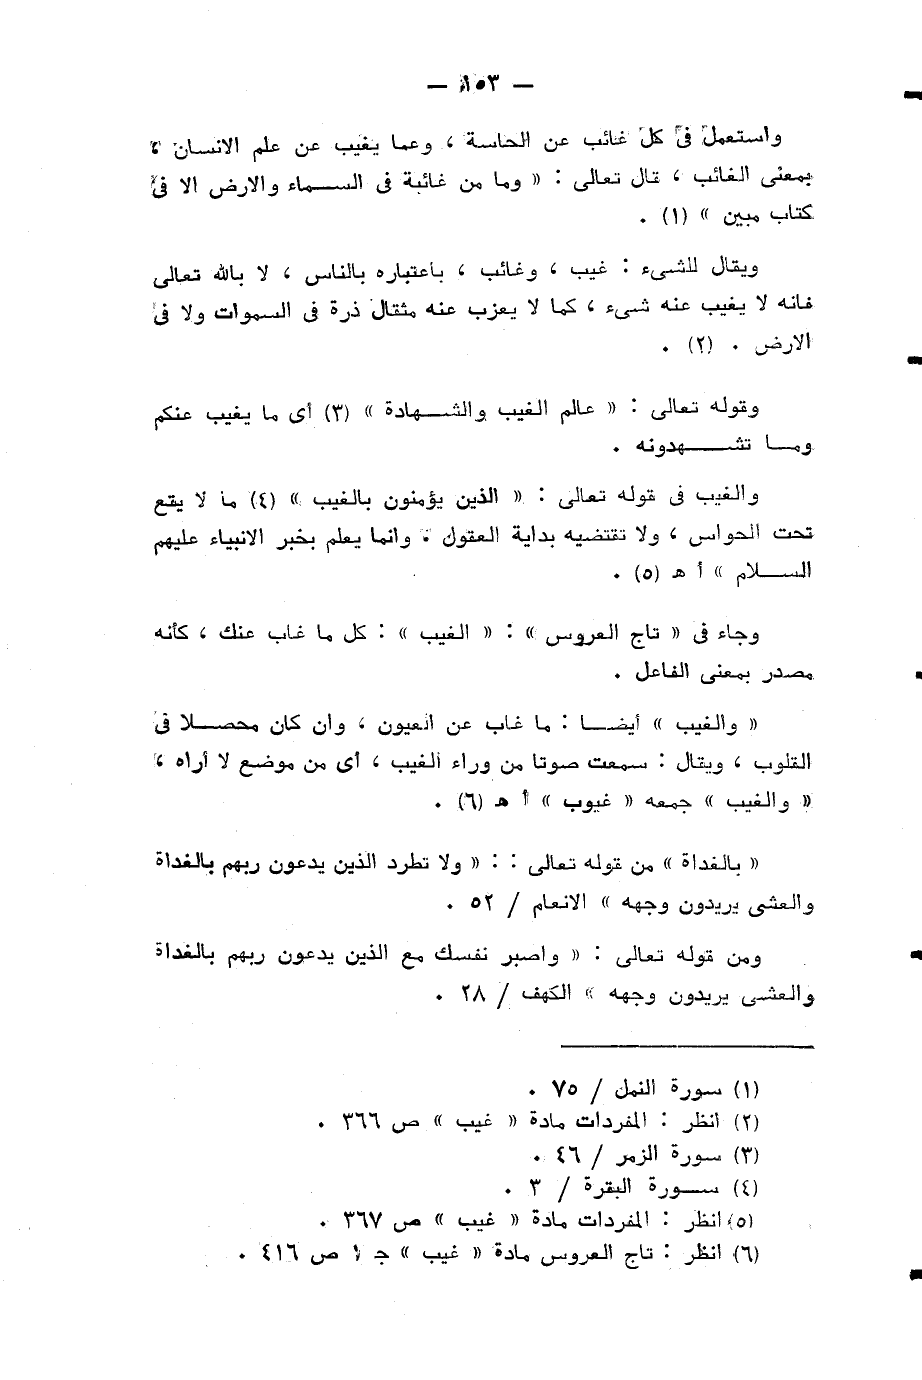 — ١٥٣ —
واستعمل فى كل غائب عن الحاسة ، وعما يغيب عن علم الانسان ،
بمعنى الغائب ، قال تعالى : « وما من غائبة فى الســماء والارض الا فى
كتاب مبين » (١) .
ويقال للشىء : غيب ، وغائب ، باعتباره بالناس ، لا بالله تعالى
فانه لا يغيب عنه شىء ، كما لا يعزب عنه مثقال ذرة فى السموات ولا فى
الارض . (٢) .
وقوله تعالى : « عالم الغيب والشــهادة » (٣) أى ما يغيب عنكم
ومــا تشــــهدونه .
والغيب فى قوله تعالى : « الذين يؤمنون بالغيب » (٤) ما لا يقع
تحت الحواس ، ولا تقتضيه بداية العقول . وانما يعلم بخبر الانبياء عليهم
الســلام » أ هـ (٥) .
وجاء فى « تاج العروس » : « الغيب » : كل ما غاب عنك ، كأنه
مصدر بمعنى الفاعل .
« والغيب » أيضــا : ما غاب عن العيون ، وان كان محصــلا فى
القلوب ، ويقال : سمعت صوتا من وراء الغيب ، أى من موضع لا أراه ،
« والغيب » جمعه « غيوب » أ هـ (٦) .
« بالغداة » من قوله تعالى : : « ولا تطرد الذين يدعون ربهم بالغداة
والعشى يريدون وجهه » الانعام / ٥٢ .
ومن قوله تعالى : « واصبر نفسك مع الذين يدعون ربهم بالغداة
والعشى يريدون وجهه » الكهف / ٢٨ .
(١) سورة النمل / ٧٥ .
(٢) انظر : المفردات مادة « غيب » ص ٣٦٦ .
(٣) سورة الزمر / ٤٦ .
(٤) ســورة البقرة / ٣ .
(٥) انظر : المفردات مادة « غيب » ص ٣٦٧ .
(٦) انظر : تاج العروس مادة « غيب » جـ ١ ص ٤١٦ .